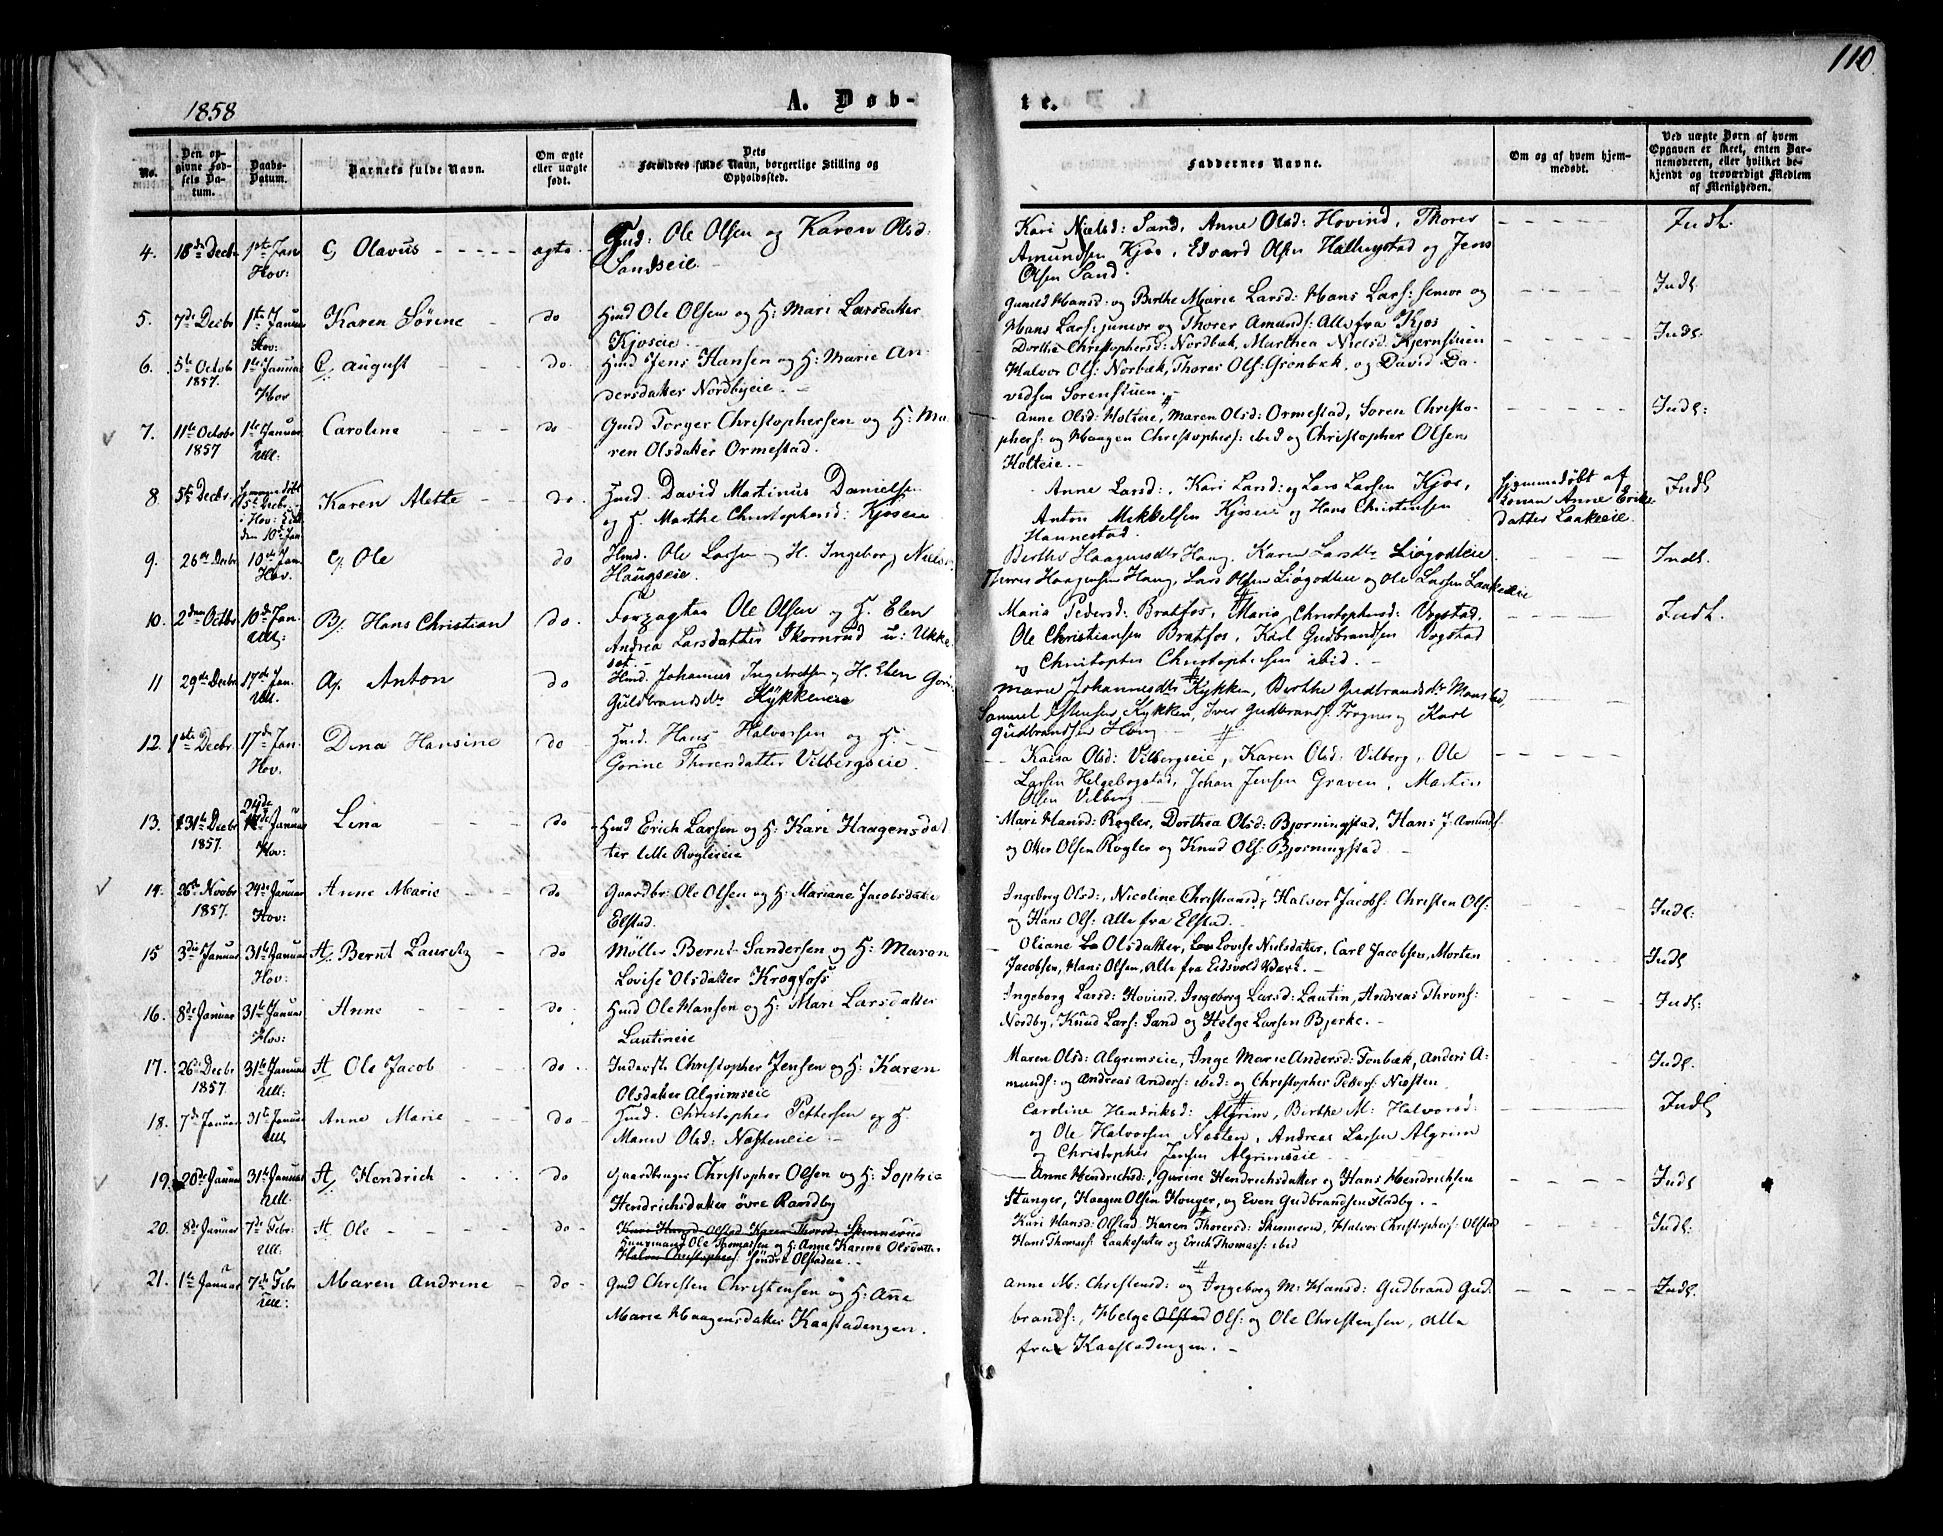 1858
A. Døb-
te.
110
No.
Den op-
givne Fød-
sels Da-
tum.
Daabs-
Datum.
Barnets fulde Navn.
Om ægte
eller uægte
født.
Dets
Forældres fulde Navn, borgerlige Stilling og
Opholdssted.
Faddernes Navne.
Om og af hvem hjem-
medøbt.
Ved uægte Børn af hvem
Opgaven er skeet, enten Bar-
nemoderen, eller hvilket be-
kjendt og troværdigt Medlem
af Menigheden.
4. 18de Decbr 1ste Jan Olavus ægte Gmd: Ole Olsen og Karen Olsd:
Hov: Sandseie
Kari Nielsd: Sand, Anne Olsd: Hovind, Thorer Indl.
Amundsen Kjos, Edvard Olsen Hallingstad og Jens
Olsen Sand.
5. 7de Decbr 1ste Januar Karen Sørine do Hmd Ole Olsen og H: Mari Larsdatter
Hov: Kjoseie
Gunild Hansd: og Birthe Marie Larsd: Hans Lars: senior og Indl.
Hans Lars: junior og Thorer Amunds: Alle fra Kjos
6. 5te Octob 1ste Januar August do. Hmd Jens Hansen og H: Marie An-
1857. Hov dersdatter Nordbyeie.
Dorthe Christophersd: Nordbæk, Marthea Nielsd: Kjernstuen Indl.
Halvor Ols: Norbæk, Thores Ols: Grønbæk, og David Da-
vidsen Sorenstuen.
7. 11te Octobr 1ste Januar Caroline do Gmd Torger Christophersen og H: Ma-
1857 Ull: ren Olsdatter Ormestad.
Anne Olsd: Holteie, Maren Olsd: Ormestad, Soren Christo- Indl:
phers: og Haagen Christophers: ibid og Christopher Olsen
Holteie.
8. 5te Decbr. Karen Alette do. Hmd. David Martinus Danielsen
5te Decbr. og H. Marthe Christophersd: Kjoseie
i Hov:
den 10de Jan
Anne Larsd:, Kari Larsd: og Lars Larsen Kjos, Hjemmedøbt af Indl
Anton Mikkelsen Kjoseie og Hans Christensen Konen Anne Eriks-
Hannestad. datter Laakeeie.
9. 26de Decbr 10de Jan. Ole do Hmd. Ole Larsen og H. Ingeborg Nielsd.
Hov. Haugseie.
Berthe Haagensdtr Haug, Karen Larsdtr Liøgodteie Indl.
Thores Haagensen Haug, Lars Olsen Liøgodteie og Ole Larsen Laakeeie
10. 2den Octbr 10de Jan. Hans Christian do. Forpagter Ole Olsen og H. Elen
Ull: Andrea Larsdatter Skornrud u: Ukke-
set.
Maria Pedersd: Bratfos, Maria Christophersd: Vogstad, Indl.
Ole Christiansen Bratfos, Karl Gudbrandsen Vogstad
og Christopher Christophersen ibid.
11 29de Decbr 17de Jan. Anton do Hmd. Johannes Ingebretsen og H. Elen Gori
Ull. Guldbrandsdtr Kÿkkeneie
Marie Johannesdtr Kykken, Berthe Gudbrandsdtr Monstad,
Samuel Estensen Kykken, Iver Gudbrands. Frogner og Karl
Gudbrandsen Haug
12. 1ste Decbr. 17de Jan. Dina Hansine do Hmd. Hans Halvorsen og H.
Hov. Gorine Thoresdatter Vilbergseie.
Kaisa Olsd: Vilbergseie, Karen Olsd: Vilberg, Ole
Larsen Helgebogstad, Johan Jensen Graven, Martin
Olsen Vilberg
13. 31te Decbr 24de Januar Lina do Hmd Erich Larsen og H: Kari Haagensdat-
1857. Hov: ter lille Rogleieie
Mari Hansd: Rogler, Dorthea Olsd: Bjørningstad, Hans J. Amunds
og Otter Olsen Rogler og Knud Ols: Bjørningstad
14. 26te Novbr 24de Januar Anne Marie do Gaardbr: Ole Olsen og H: Mariane Jacobsdatter
1857. Hov: Elstad.
Ingeborg Olsd:, Nicoline Christiansd:, Halvor Jacobs: Christen Ols: Indl:
og Hans Ols: Alle fra Elstad.
15 3die Januar 31te Januar Bernt Lauritz do. Møller Bernt Sandersen og H: Maren
Hov: Lovise Olsdatter Krogfoss
Oliane Olsdatter, Lovise Nielsdatter, Carl Jacobsen, Morten Indl
Jacobsen, Hans Olsen, Alle fra Eidsvold Værk.
16. 8de Januar 31te Januar Anne do. Hmd Ole Hansen og H: Mari Larsdatter
Hov: Lautineie
Ingeborg Larsd: Hovind, Ingeborg Larsd: Lautin, Andreas Throns: Indl:
Nordby, Knud Lars: Sand og Helge Larsen Bjerke.
17. 26de Decbr 31te Januar Ole Jacob do. Inderste Christopher Jensen og H: Karen
1857. Ull. Olsdatter Algrimseie
Maren Olsd: Algrimseie, Inge Marie Andersd: Tonbæk, Anders A- Indl.
munds: og Andreas Anders: ibid: og Christopher Petters: Næsten
18. 7de Januar 31te Januar Anne Marie do Hmd. Christopher Pettersen og H
Ull Mann Olsd: Næsteneie
Caroline Hendriksd: Algrim, Birthe M: Halvorsd: Indl
og Ole Halvorsen Næsten, Andreas Larsen Algrim
og Christopher Jensen Algrimseie
19. 20de Januar 31te Januar Hendrich do Gaardbruger Christopher Olsen og H: Sophie
Ull. Hendrichsdatter øvre Randby
Anne Hendrichsd:, Gurine Hendrichsdatter og Hans Hendrichsen Indl
Stanger, Haagen Olsen Houger, og Even Gudbrandsen Stadby.
20. 8de Januar 7de Febr: Ole do Kari Hansd Olstad Karen Thorsd: Skinnerud
Ull. Huusmand Ole Thomassen og H: Anne Karine Olsdatter
Halvor Christophers: Søndre Olstadeie.
Kari Hansd: Olstad, Karen Thorersd: Skinnerud, Halvor Christophers: Olstad Indl:
Hans Thomas: Laakesater og Erich Thomas: ibid
21. 1ste Januar 7de Febr Maren Andrine do. Gmd Christen Christensen og H: Ane
Ull: Marie Haagensdatter Kaastadengen.
Anne M: Christensd: og Ingeborg M: Hansd: Gudbrand Gud- Indl.
brands:, Helge Olstad Ols: og Ole Christensen, alle
fra Kaastadengen.